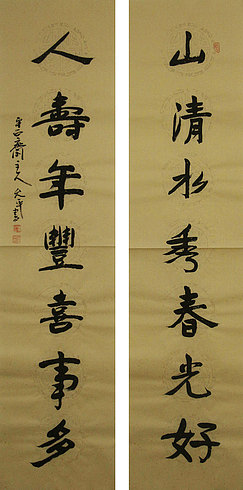 山清水秀春光好
人壽年豐喜事多